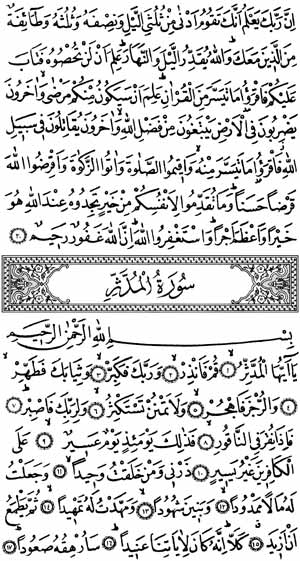 اِنَّ رَبَّكَ يَعْلَمُ اَنَّكَ تَقُومُ اَدْنٰى مِنْ ثُلُثَىِ الَّيْلِ وَنِصْفَهُ وَثُلُثَهُ وَطَآئِفَةٌ
مِنَ الَّذِينَ مَعَكَ وَاللّٰهُ يُقَدِّرُ الَّيْلَ وَالنَّهَارَ عَلِمَ اَنْ لَنْ تُحْصُوهُ فَتَابَ
عَلَيْكُمْ فَاقْرَؤُا مَا تَيَسَّرَ مِنَ الْقُرْاٰنِ عَلِمَ اَنْ سَيَكُونُ مِنْكُمْ مَرْضٰى وَاٰخَرُونَ
يَضْرِبُونَ فِى الْاَرْضِ يَبْتَغُونَ مِنْ فَضْلِ اللّٰهِ وَاٰخَرُونَ يُقَاتِلُونَ فِى سَبِيلِ
اللّٰهِ فَاقْرَؤُا مَا تَيَسَّرَ مِنْهُ وَاَقِيمُوا الصَّلٰوةَ وَاٰتُوا الزَّكٰوةَ وَاَقْرِضُوا اللّٰهَ
قَرْضًا حَسَنًا وَمَا تُقَدِّمُوا لِاَنْفُسِكُمْ مِنْ خَيْرٍ تَجِدُوهُ عِنْدَ اللّٰهِ هُوَ
خَيْرًا وَاَعْظَمَ اَجْرًا وَاسْتَغْفِرُوا اللّٰهَ اِنَّ اللّٰهَ غَفُورٌ رَحِيمٌ ﴿٢٠﴾
سُورَةُ الْمُدَّثِّرِ
بِسْمِ اللّٰهِ الرَّحْمٰنِ الرَّحِيمِ
يَآ اَيُّهَا الْمُدَّثِّرُ ﴿١﴾ قُمْ فَاَنْذِرْ ﴿٢﴾ وَرَبَّكَ فَكَبِّرْ ﴿٣﴾ وَثِيَابَكَ فَطَهِّرْ
﴿٤﴾ وَالرُّجْزَ فَاهْجُرْ ﴿٥﴾ وَلَا تَمْنُنْ تَسْتَكْثِرُ ﴿٦﴾ وَلِرَبِّكَ فَاصْبِرْ ﴿٧﴾
فَاِذَا نُقِرَ فِى النَّاقُورِ ﴿٨﴾ فَذٰلِكَ يَوْمَئِذٍ يَوْمٌ عَسِيرٌ ﴿٩﴾ عَلَى
الْكَافِرِينَ غَيْرُ يَسِيرٍ ﴿١٠﴾ ذَرْنِى وَمَنْ خَلَقْتُ وَحِيدًا ﴿١١﴾ وَجَعَلْتُ
لَهُ مَالًا مَمْدُودًا ﴿١٢﴾ وَبَنِينَ شُهُودًا ﴿١٣﴾ وَمَهَّدْتُ لَهُ تَمْهِيدًا ﴿١٤﴾ ثُمَّ يَطْمَعُ
اَنْ اَزِيدَ ﴿١٥﴾ كَلَّا اِنَّهُ كَانَ لِاٰيَاتِنَا عَنِيدًا ﴿١٦﴾ سَاُرْهِقُهُ صَعُودًا ﴿١٧﴾